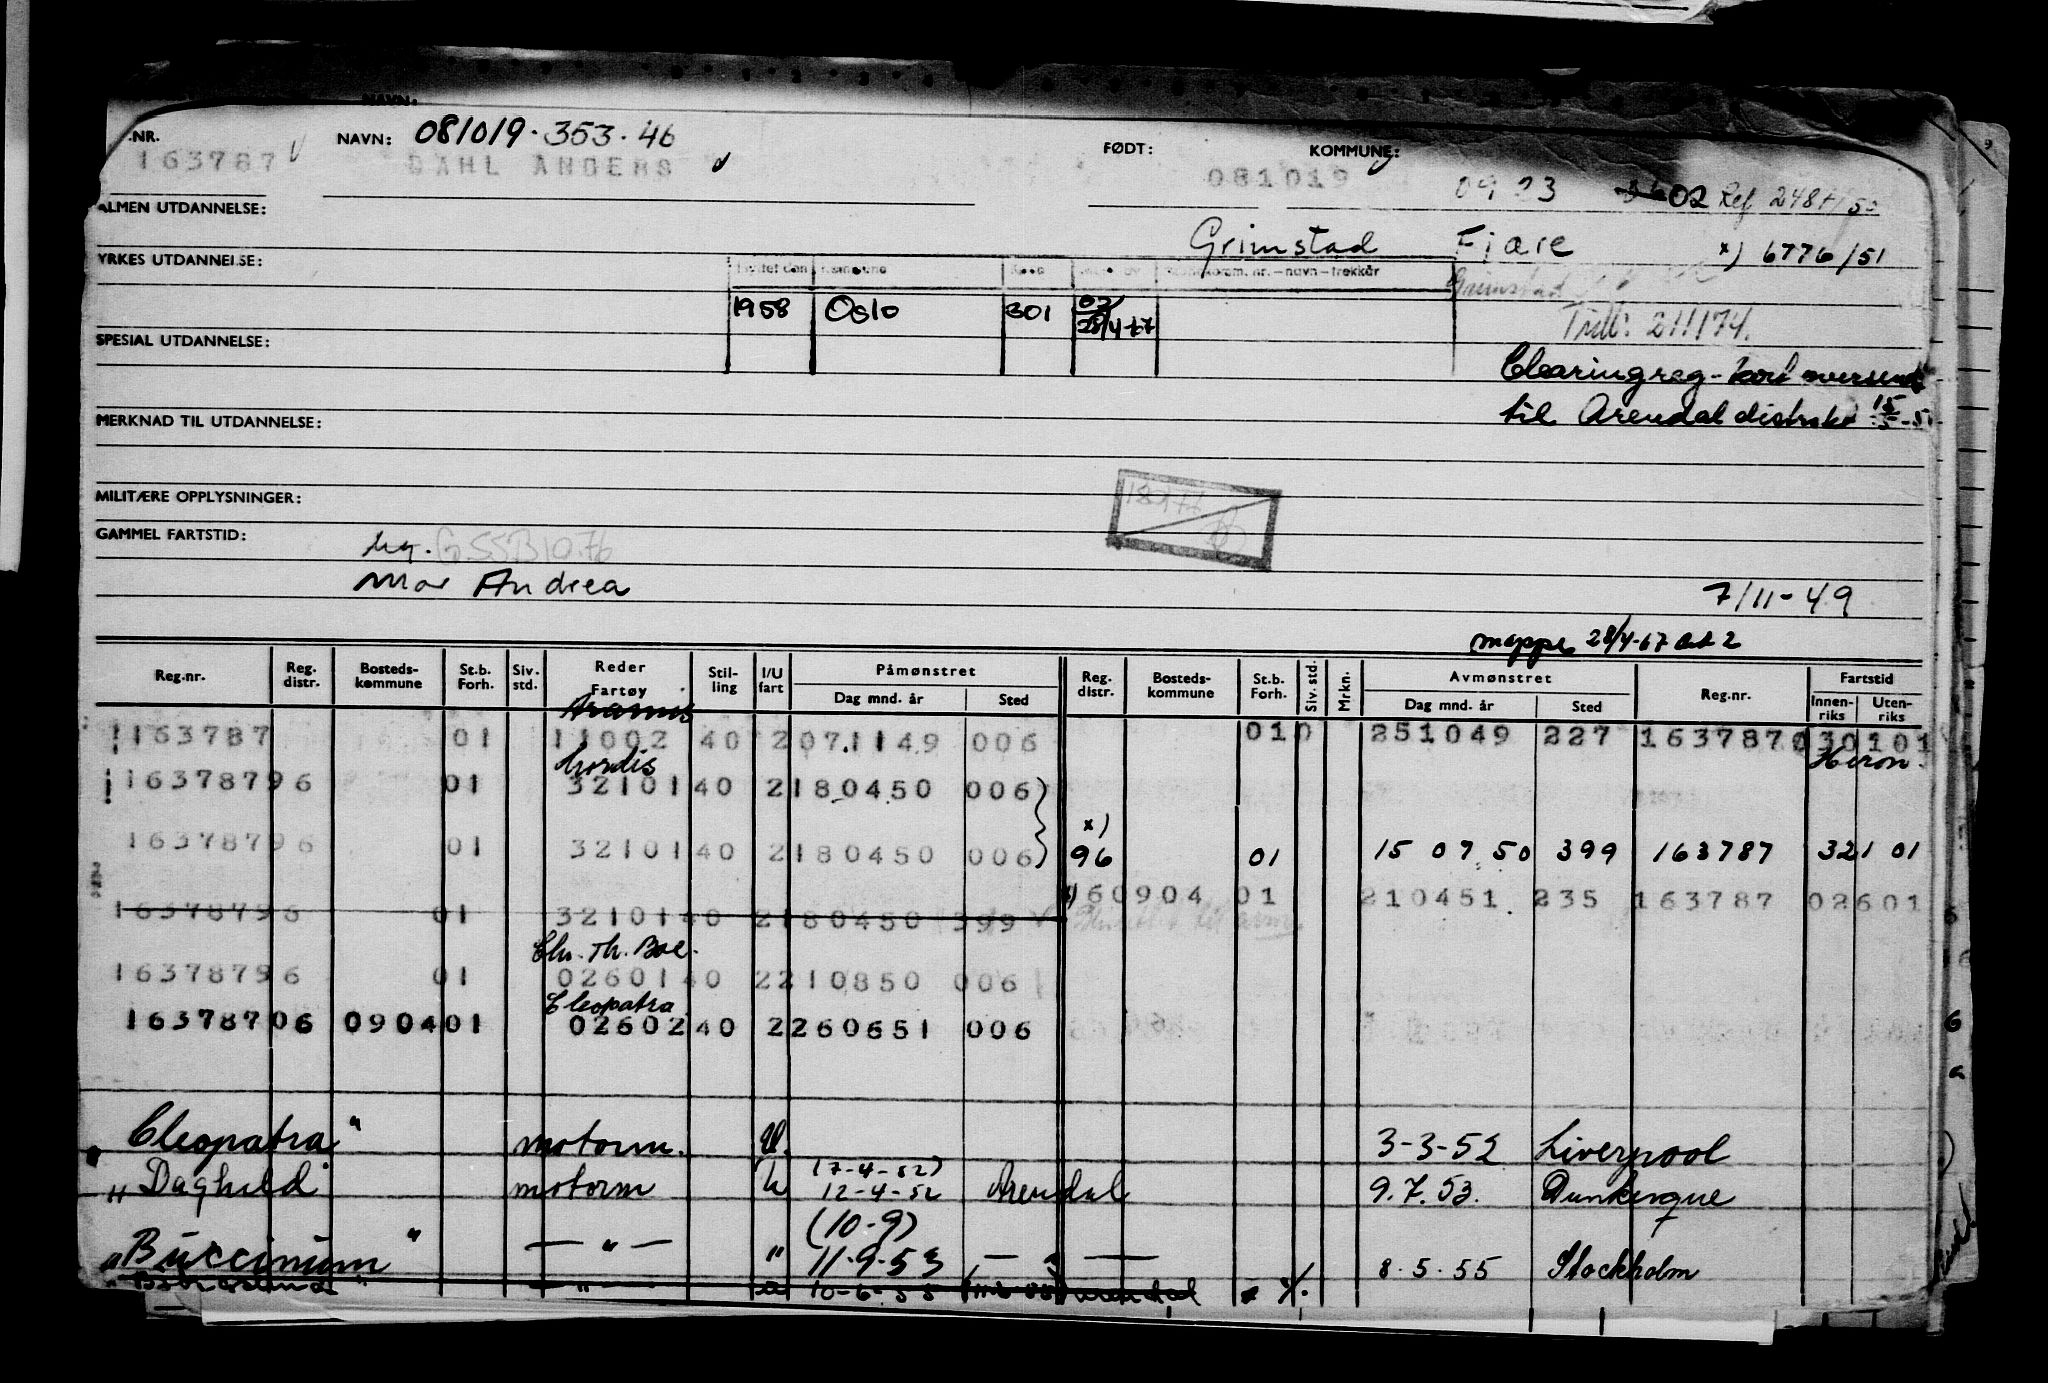 NAVN:
.NR. NAVN: 081019.353.46 FØDT: KOMMUNE:
163787 DAHL ANDERS 081019 09 23 02 Ref 2481/50
ALMEN UTDANNELSE:
Grimstad Fjære x) 6776/51
YRKES UTDANNELSE:
Flyttet den Kommune -navn-trekker Grimstad
1958 Oslo 301 02 28/4-77
Trill: 211174.
SPESIAL UTDANNELSE:
Clearingreg-kort oversendt
til Arendal distrikt 15/5-5
MERKNAD TIL UTDANNELSE:
MILITÆRE OPPLYSNINGER:
GAMMEL FARTSTID:
Mor Andrea
7/11-49
mappe 28/4-67
Reg.nr. Reg. distr. Bosteds-kommune St.b. Forh. Siv. std. Reder Fartøy Stil-ling I/U fart Påmønstret Dag mnd. år Sted Reg. distr. Bosteds-kommune St.b. Forh. Siv. std. Mrkn. Avmønstret Dag mnd. år Sted Reg.nr. Fartstid Innen-riks Uten-riks
Aramis
163787 01 11002 40 2 071149 006 010 251049 227 163787 030101
Nordis Heron.
163787 96 01 32101 40 2 180450 006
x)
163787 96 01 32101 40 2 180450 006 96 01 15 07 50 399 163787 321 01
6 0904 01 210451 235 163787 02601
163787 96 01 32101 40 2 180450 399
Chr. Th. Boe.
163787 96 01 02601 40 2 210850 006
Cleopatra
163787 06 0904 01 02602 40 2 260651 006
Cleopatra" motorm. U. 3-3-52 Liverpool
(7-4-52)
" Daghild motorm U 12-4-52 Arendal 9.7.53. Dunkerque
(10-9)
" Buccinum " — " — " 11-9-53 — " — 8.5.55 Stockholm
— " — 10-6-55 Arendal